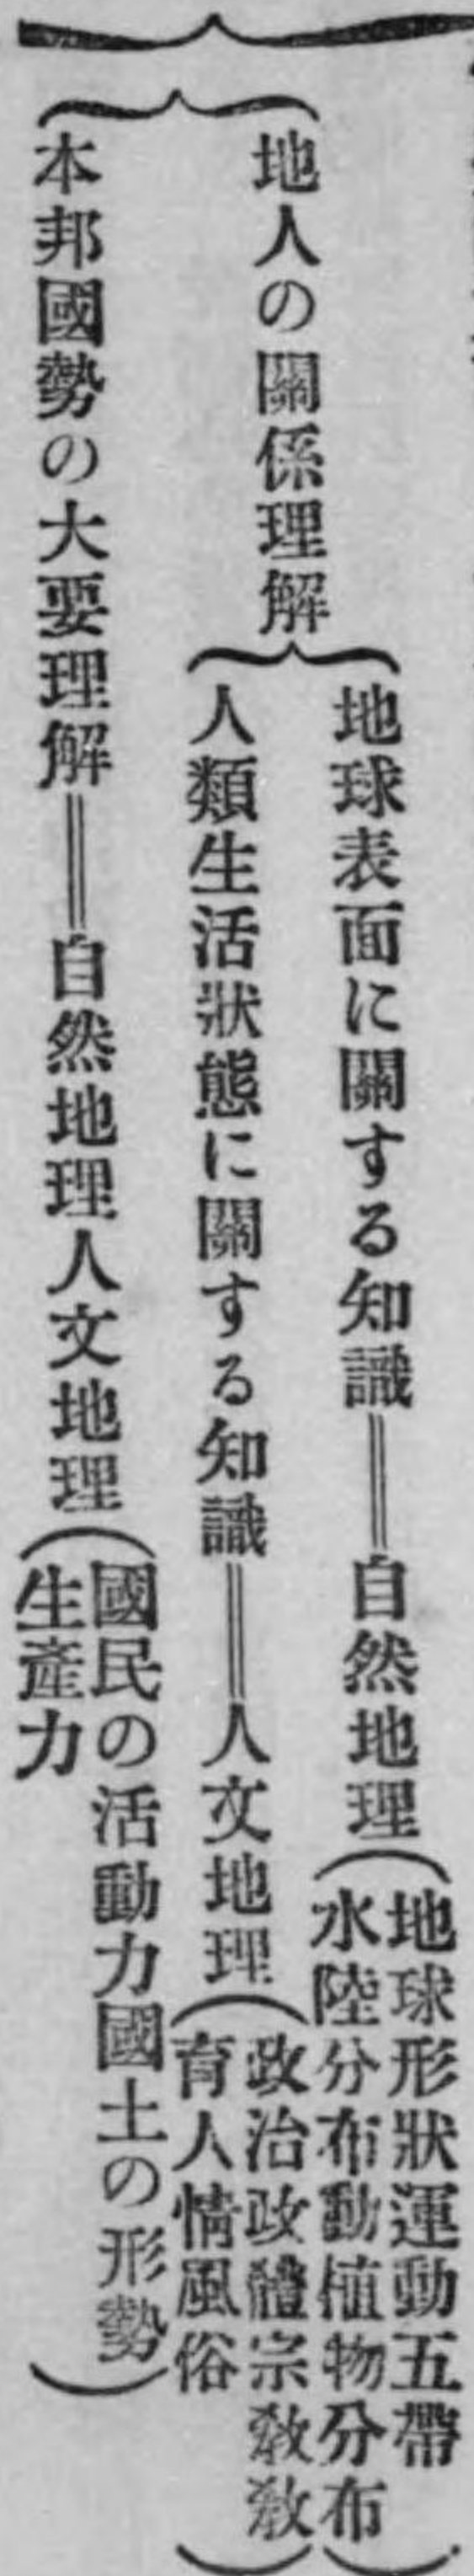 地人の關係理解
地球表面に關する知識＝自然地理（地球形狀運動五帶
水陸分布動植物分布）
人類生活狀態に關する知識＝人文地理（政治政體宗敎敎
育人情風俗）
本邦國勢の大要理解＝自然地理人文地理（國民の活動力國土の形勢
生產力）